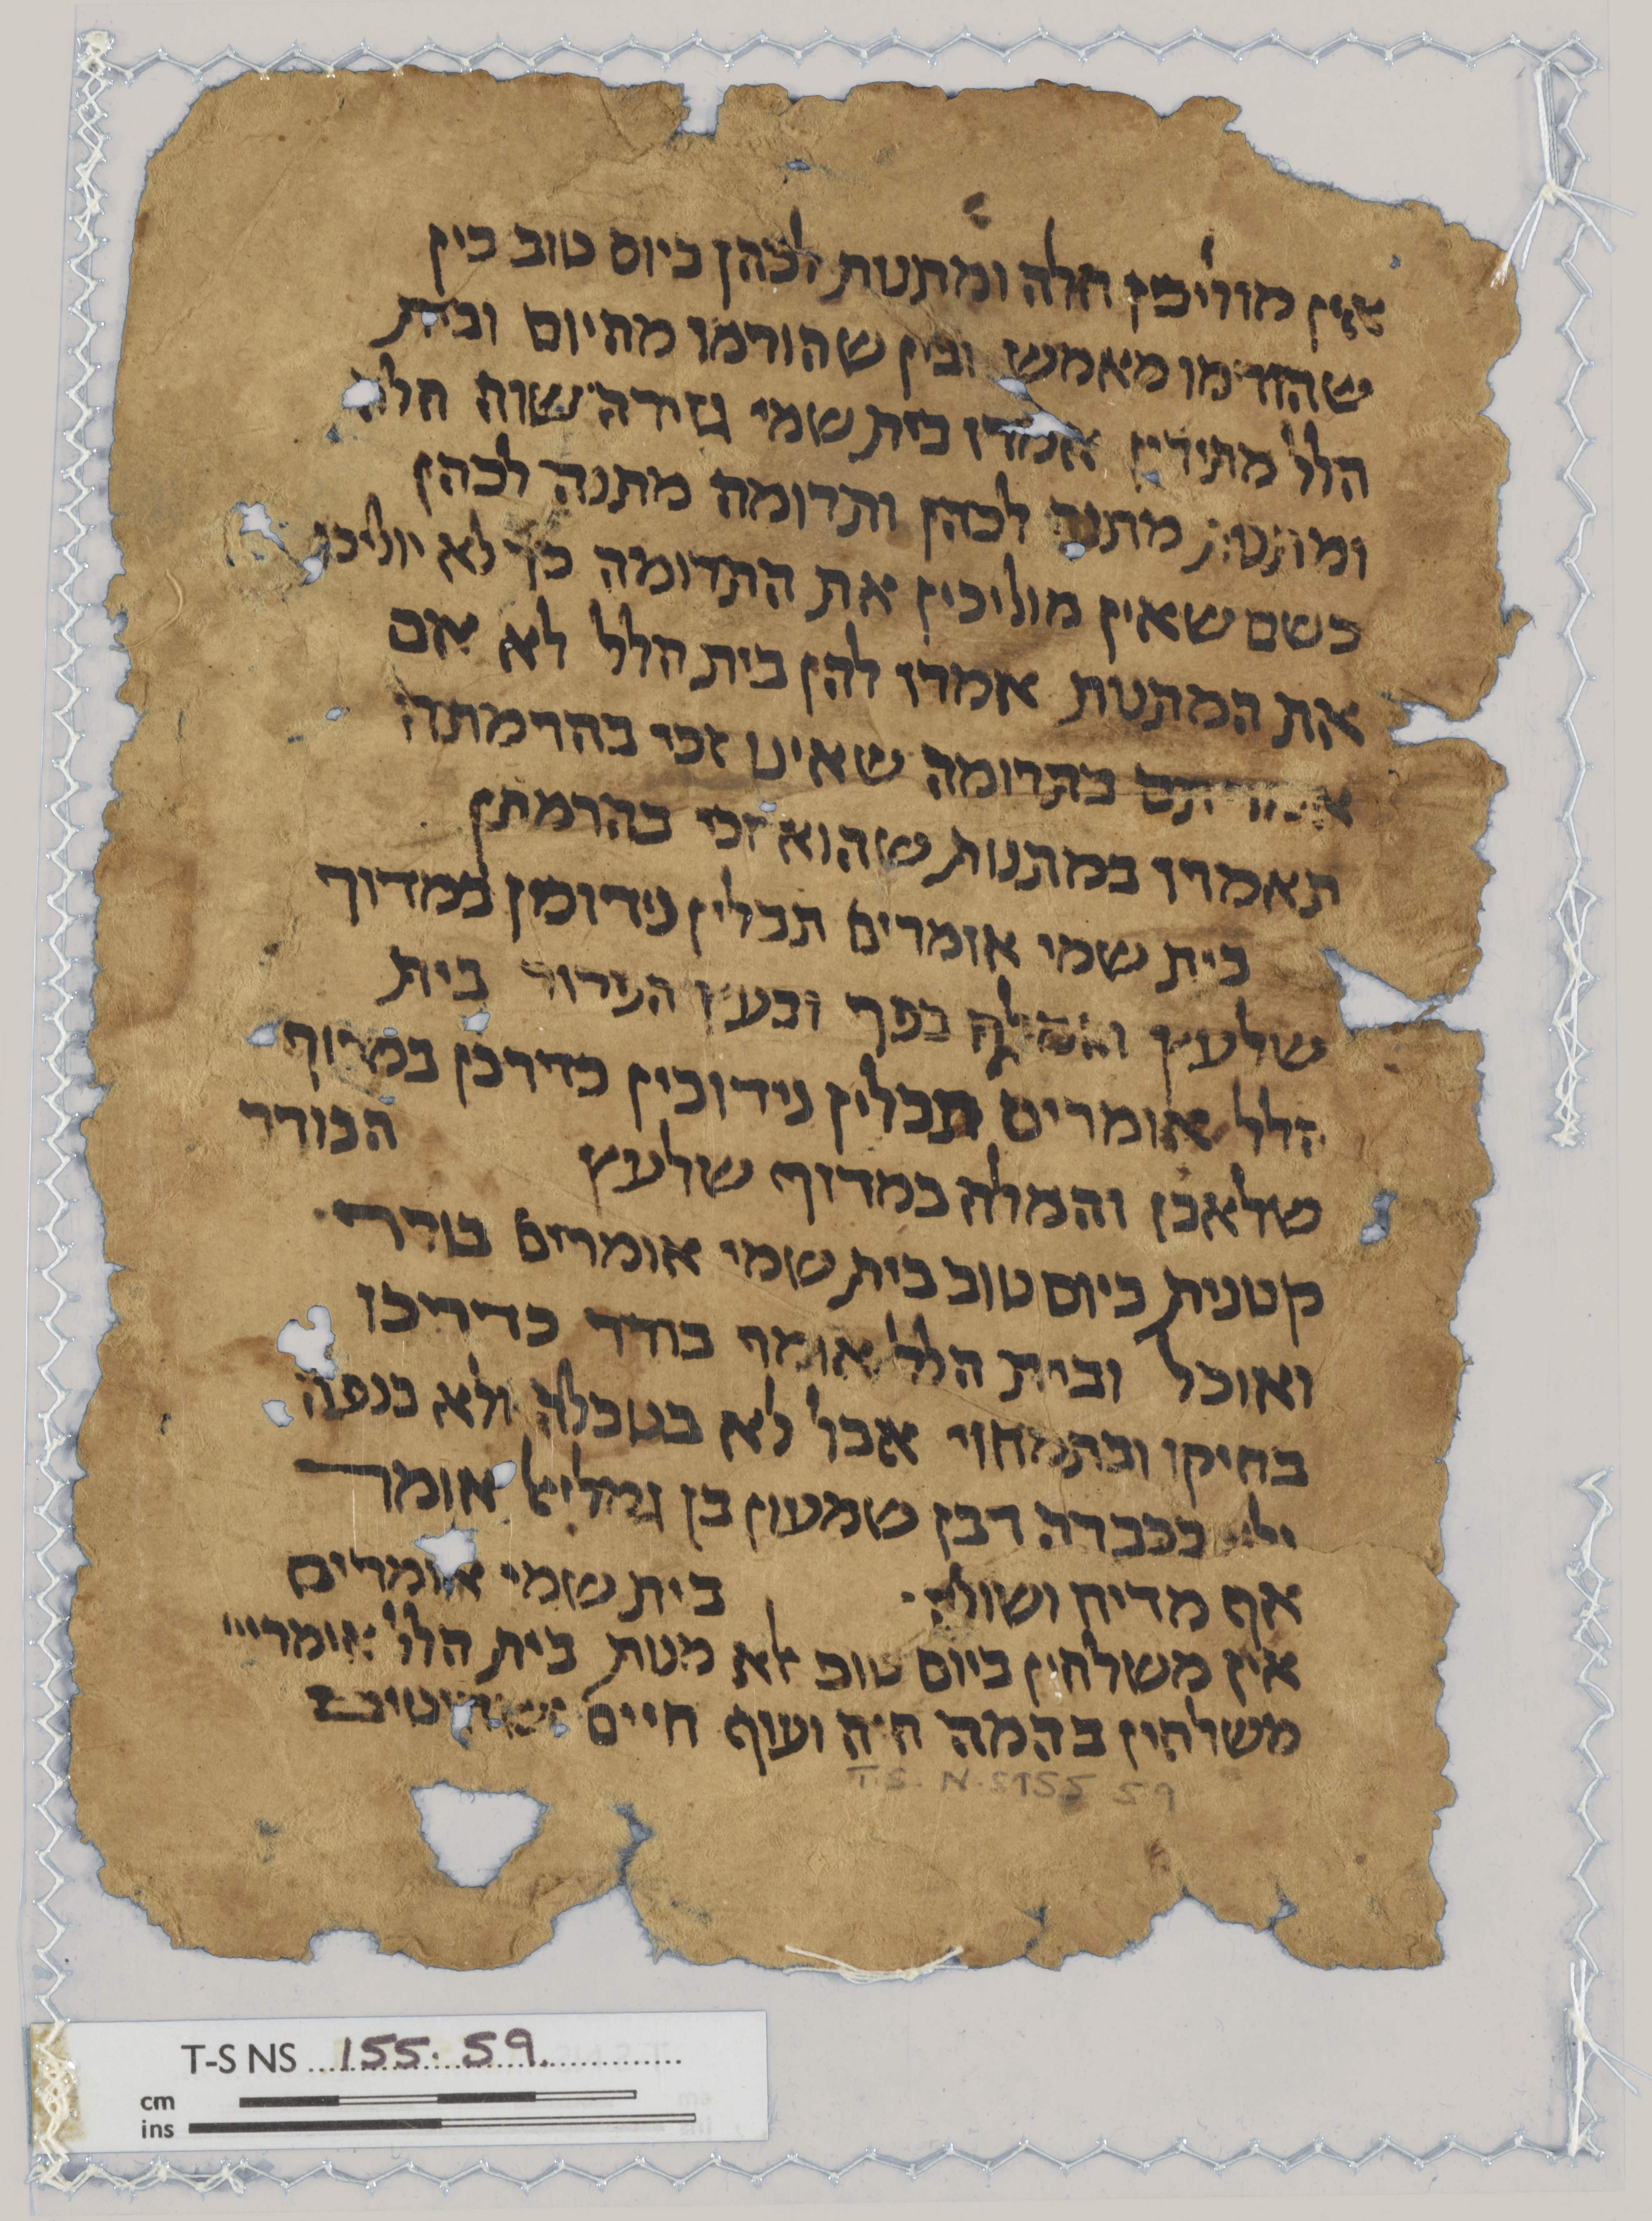 אין מוליכין חלה ומתנות לכהן ביום טוב בין
שהורמו מאמש ובין שהורמו מהיום ובית
הלל מתירין אמרו בית שמי גזירה שווה חלה
ומתנות מתנה לכהן ותרומה מתנה לכהן
כשם שאין מוליכין את התרומה כך לא יוליכו
את המתנות אמרו להן בית הלל לא אם
אמרתם בתרומה שאינו זכי בהרמתה
תאמרו במתנות שהוא זכי בהרמתן
בית שמי אומרים תבלין נידוכין במדוך
שלעץ והמלח בפך ובעץ הפרור בית
הלל אומרים תבלין נידוכין כדרכן במדוך
שלאבן והמלח במדוך שלעץ הבורר
קטנית ביום טוב בית שמי אומרים בורר
ואוכל ובית הלל אומ׳ בורר כדרכו
בחיקו ובתמחוי אבל לא בטבלה ולא בנפה
ולא בכברה רבן שמעון בן גמליאל אומר
אף מדיח ושולה בית שמי אומרים
אין משלחין ביום טוב אלא מנות בית הלל אומרי׳
משלחין בהמה חיה ועוף חיים
T.S. N.S 155 59
T-S NS 155. 59.
cm
ins